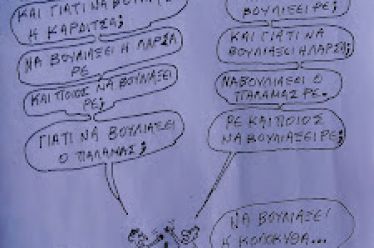 ΚΑΙ ΓΙΑΤΙ ΝΑ ΒΟΥΛΙΑΞΕΙ
Η ΚΑΡΔΙΤΣΑ;
ΝΑ ΒΟΥΛΙΑΞΕΙ Η ΛΑΡΣΑ
ΡΕ
ΚΑΙ ΠΟΙΟΣ ΝΑ ΒΟΥΛΙΑΞΕΙ
ΡΕ;
ΓΙΑΤΙ ΝΑ ΒΟΥΛΙΑΞΕΙ
Ο ΠΑΛΑΜΑΣ;
ΒΟΥΛΙΑΞΕΙ ΡΕ;
ΚΑΙ ΓΙΑΤΙ ΝΑ
ΒΟΥΛΙΑΞΕΙ Η ΛΑΡΣΑ;
ΝΑ ΒΟΥΛΙΑΞΕΙ Ο
ΠΑΛΑΜΑΣ ΡΕ.
ΡΕ ΚΑΙ ΠΟΙΟΣ
ΝΑ ΒΟΥΛΙΑΞΕΙ ΡΕ;
ΝΑ ΒΟΥΛΙΑΞΕΙ
Η ΚΟΛΟΚΥΘΑ...